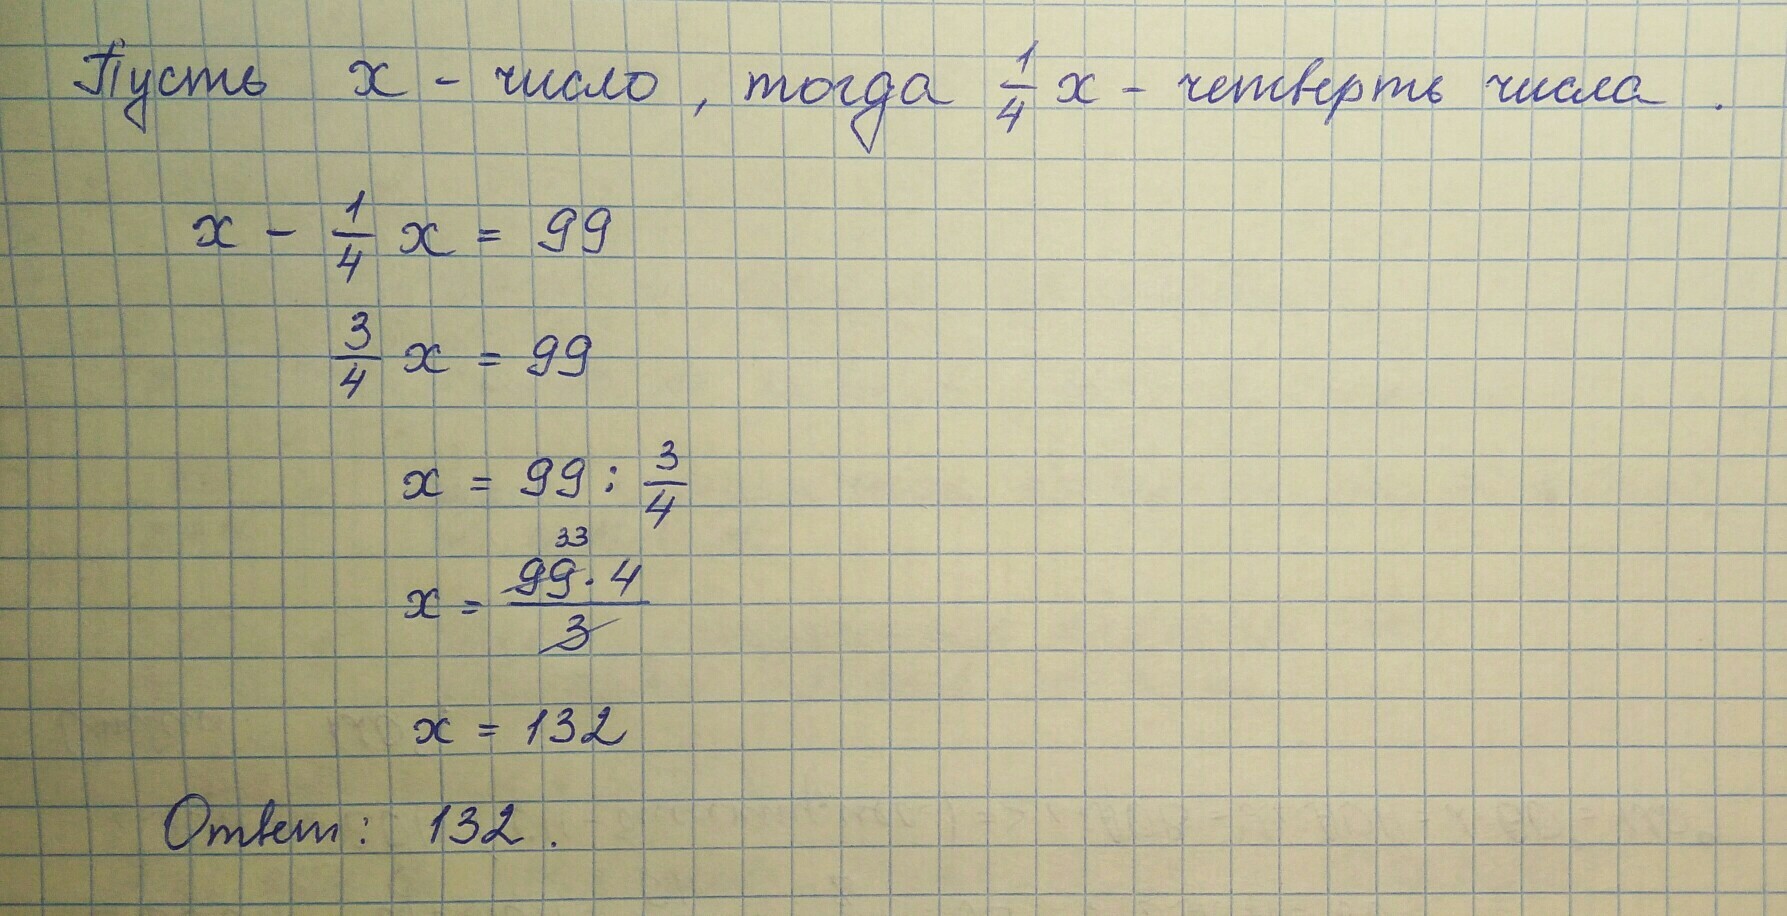 Пусть x - число, тогда 1/4 x - четверть числа.
x - 1/4 x = 99
3/4 x = 99
x = 99 : 3/4
33
x = 99 · 4 / 3
x = 132
Ответ: 132.